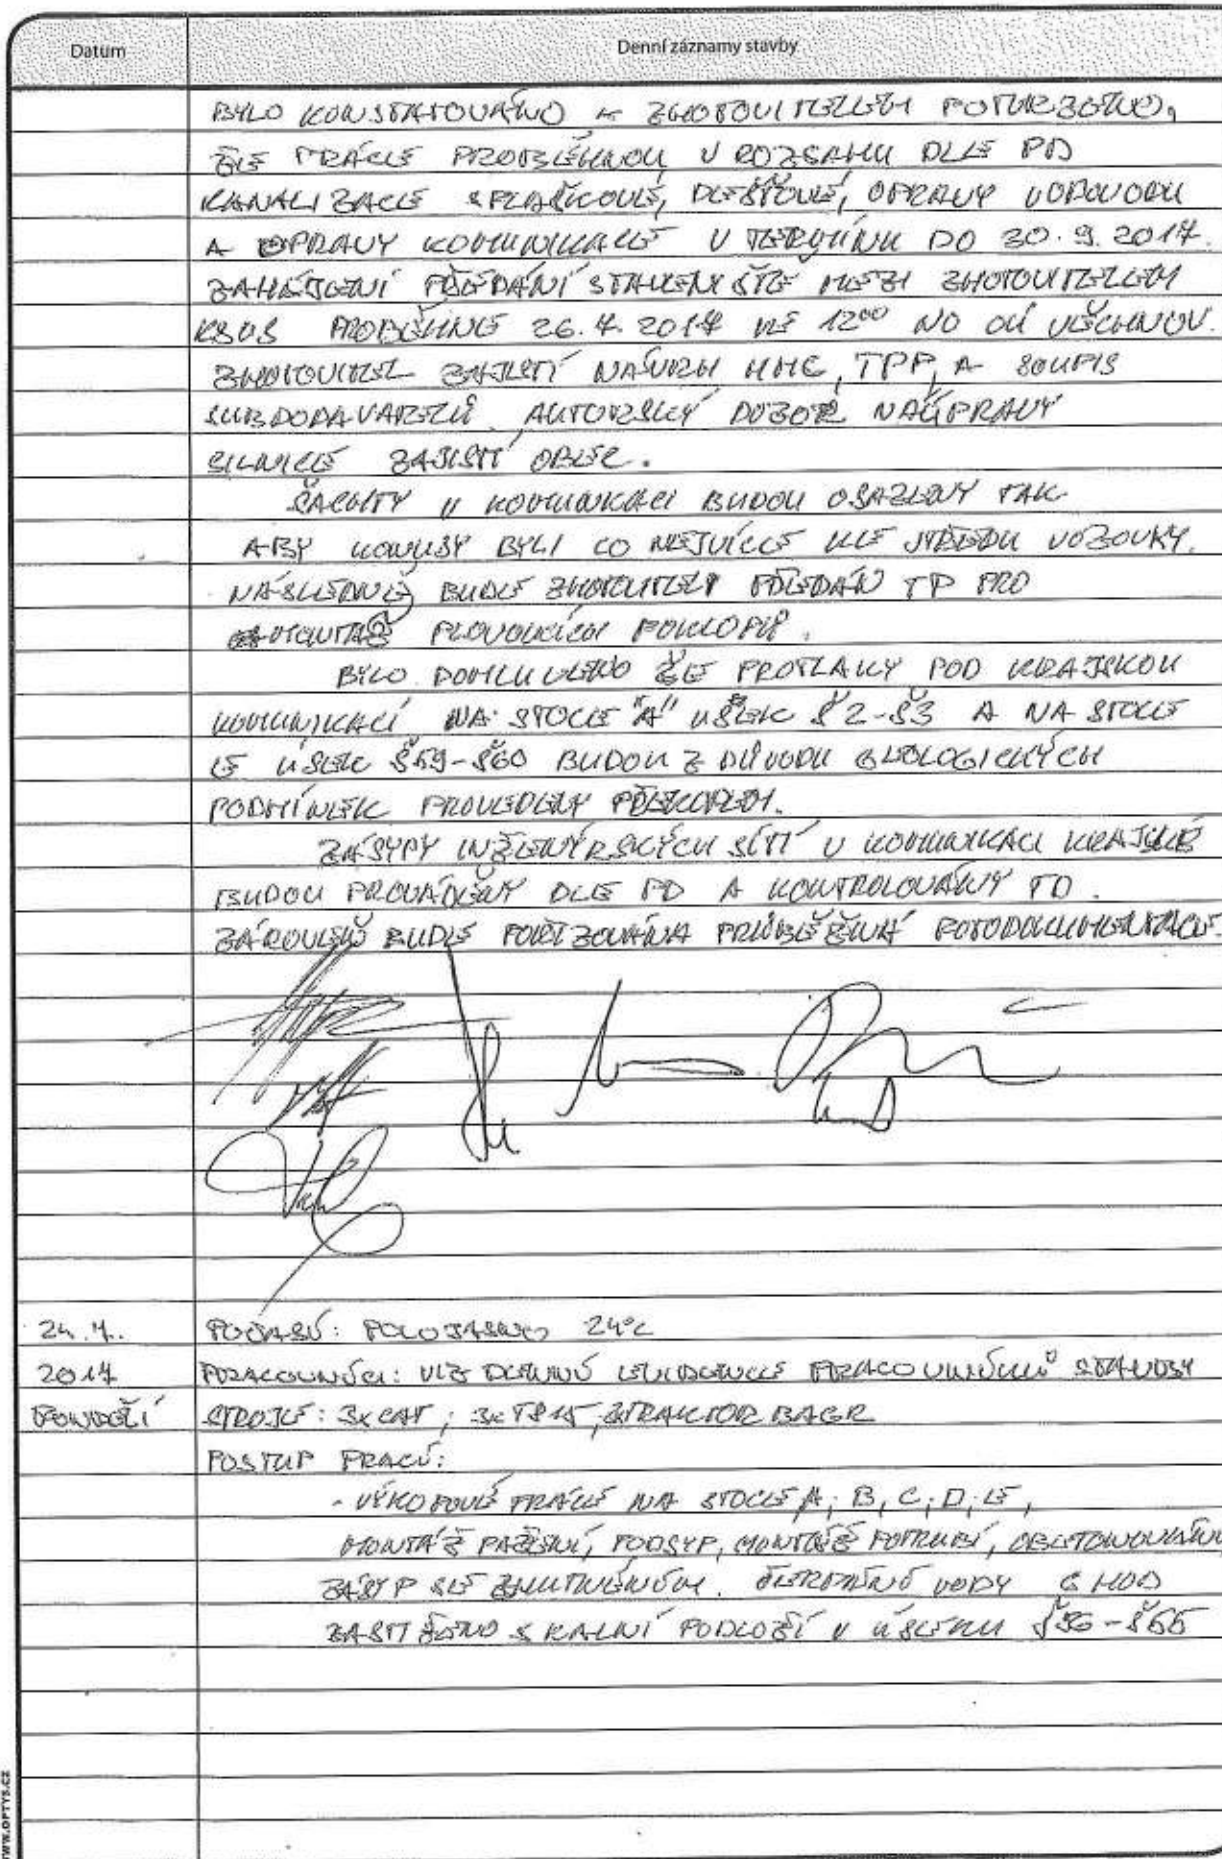 Datum
Denní záznamy stavby
BYLO KONSTATOVÁNO A ZHOTOVITELEM POTVRZENO,
ŽE PRÁCE PROBĚHNOU V ROZSAHU DLE PD
KANALIZACE SPLAŠKOVÉ, DEŠŤOVÉ, OPRAVY VODOVODU
A OPRAVY KOMUNIKACE V TERMÍNU DO 30.9.2017.
ZAHÁJENÍ PŘEDÁNÍ STAVENIŠTĚ MEZI ZHOTOVITELEM
KSÚS PROBĚHNE 26.7.2017 VE 12⁰⁰ NO OÚ
ZHOTOVITEL ZAJISTÍ NÁVRH HMG, TPP, A SOUPIS
SUBDODAVATELŮ. AUTORSKÝ DOZOR NA ÚPRAVY
SILNICE ZAJISTÍ OBEC.
ŠACHTY V KOMUNIKACI BUDOU OSAZENY TAK
ABY KONUSY BYLI CO NEJVÍCE KE STŘEDU VOZOVKY.
NÁSLEDNĚ BUDE ZHOTOVITELI PŘEDÁN TP PRO
MONTÁŽ PLOVOUCÍCH POKLOPŮ.
BYLO DOMLUVENO ŽE PROTLAKY POD KRAJSKOU
KOMUNIKACÍ NA STOCE "A" ÚSEK Š2-Š3 A NA STOCE
E ÚSEK Š59-Š60 BUDOU Z DŮVODU GEOLOGICKÝCH
PODMÍNEK PROVEDENY PŘEKOPEM.
ZÁSYPY INŽENÝRSKÝCH SÍTÍ V KOMUNIKACI KRAJSKÉ
BUDOU PROVÁDĚNY DLE PD A KONTROLOVÁNY TD.
ZÁROVEŇ BUDE POŘIZOVÁNA PRŮBĚŽNÁ FOTODOKUMENTACE.
24.7. POČASÍ: POLOJASNO 24°C
2017 PRACOVNÍCI: VIZ DENNÍ EVIDENCE PRACOVNÍKŮ STAVBY
PONDĚLÍ STROJE: 3x CAT; 3x T815, 2TRAKTOR BAGR
POSTUP PRACÍ:
- VÝKOPOVÉ PRÁCE NA STOCE A, B, C, D, E,
MONTÁŽ PAŽENÍ, PODSYP, MONTÁŽ POTRUBÍ, OBETONOVÁNÍ
ZÁSYP SE ZHUTNĚNÍM. ČERPÁNÍ VODY 6 HOD
ZASTIŽENO SKALNÍ PODLOŽÍ V ÚSEKU Š56-Š65
WWW.OPTYS.CZ